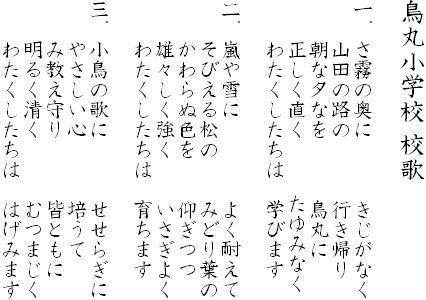 鳥丸小学校 校歌
一、さ霧の奥に きじがなく
山田の路の 行き帰り
朝な夕なを 鳥丸に
正しく直く たゆみなく
わたくしたちは 学びます
二、嵐や雪に よく耐えて
そびえる松の みどり葉の
かわらぬ色を 仰ぎつつ
雄々しく強く いさぎよく
わたくしたちは 育ちます
三、小鳥の歌に せせらぎに
やさしい心 培うて
み教え守り 皆ともに
明るく清く むつまじく
わたくしたちは はげみます